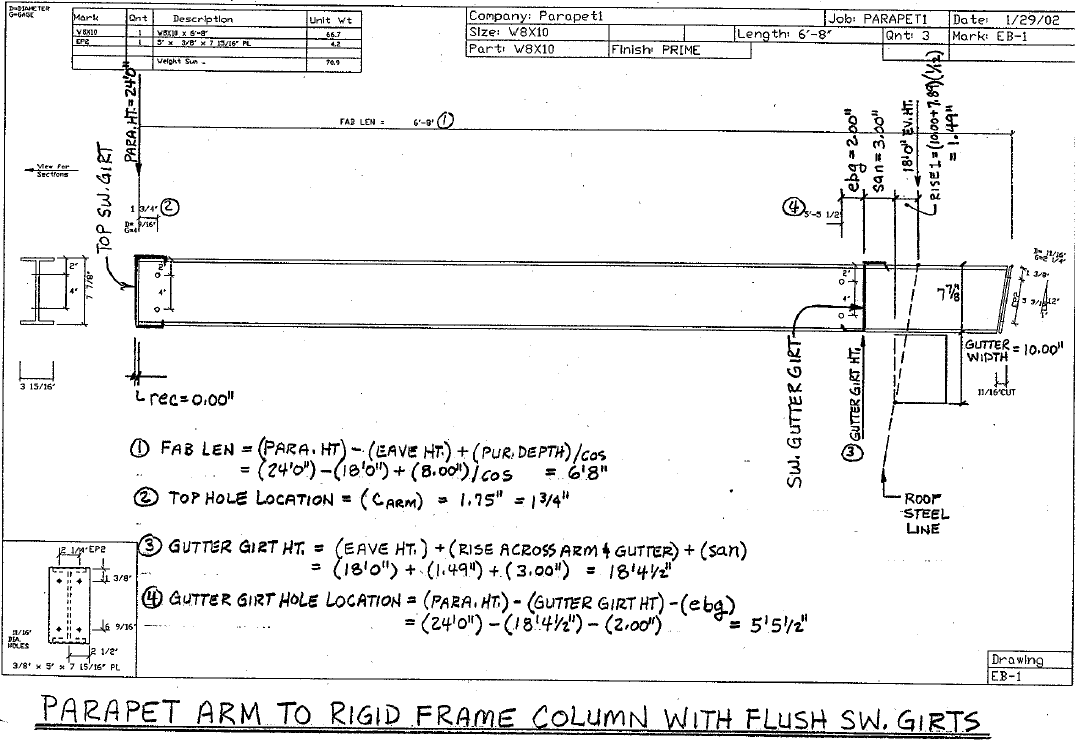 D=DIAMETER
G=GAGE
Mark Qnt Description Unit Wt
W8X10 1 W8X10 x 6'-8" 66.7
EP2 1 5" x 3/8" x 7 15/16" PL 4.2
Weight Sum = 70.9
Company: Parapet1 Job: PARAPET1 Date: 1/29/02
Size: W8X10 Length: 6'-8" Qnt: 3 Mark: EB-1
Part: W8X10 Finish: PRIME
FAB LEN = 6'-8" ①
PARA. HT. = 24'0"
TOP SW. GIRT
View For
Sections
1 3/4" ②
D= 9/16"
G=4"
ebg = 2.00"
san = 3.00"
18'0" EV. HT.
RISE 1 = (10.00+7.89)(1/12)
= 1.49"
④ 5'-5 1/2"
2"
4"
7 7/8"
3 15/16"
2"
4"
2"
4"
7 7/8"
D= 11/16"
1 3/8"
EP2
12"
GUTTER
WIDTH = 10.00"
11/16" CUT
rec = 0.00"
SW. GUTTER GIRT
③ GUTTER GIRT HT.
ROOF
STEEL
LINE
① FAB LEN = (PARA. HT) - (EAVE HT.) + (PUR. DEPTH)/cos
= (24'0") - (18'0") + (8.00")/cos = 6'8"
② TOP HOLE LOCATION = (CARM) = 1.75" = 1 3/4"
③ GUTTER GIRT HT. = (EAVE HT.) + (RISE ACROSS ARM & GUTTER) + (san)
= (18'0") + (1.49") + (3.00") = 18'4 1/2"
④ GUTTER GIRT HOLE LOCATION = (PARA. HT.) - (GUTTER GIRT HT) - (ebg)
= (24'0") - (18'4 1/2") - (2.00") = 5'5 1/2"
2 1/4" EP2
1 3/8"
6 9/16"
11/16"
DIA.
HOLES
2 1/2"
3/8" x 5" x 7 15/16" PL
Drawing
EB-1
PARAPET ARM TO RIGID FRAME COLUMN WITH FLUSH SW. GIRTS